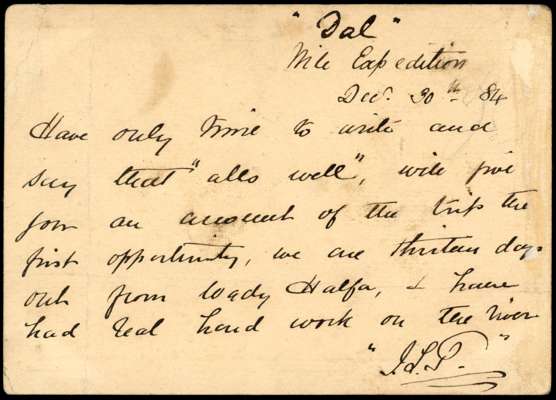 "Dal"
Nile Expedition
Dec. 30th 84
Have only time to write and
say that "alls well", will give
you an account of the trip the
first opportunity, we are thirteen days
out from Wady Halfa, & have
had real hard work on the river